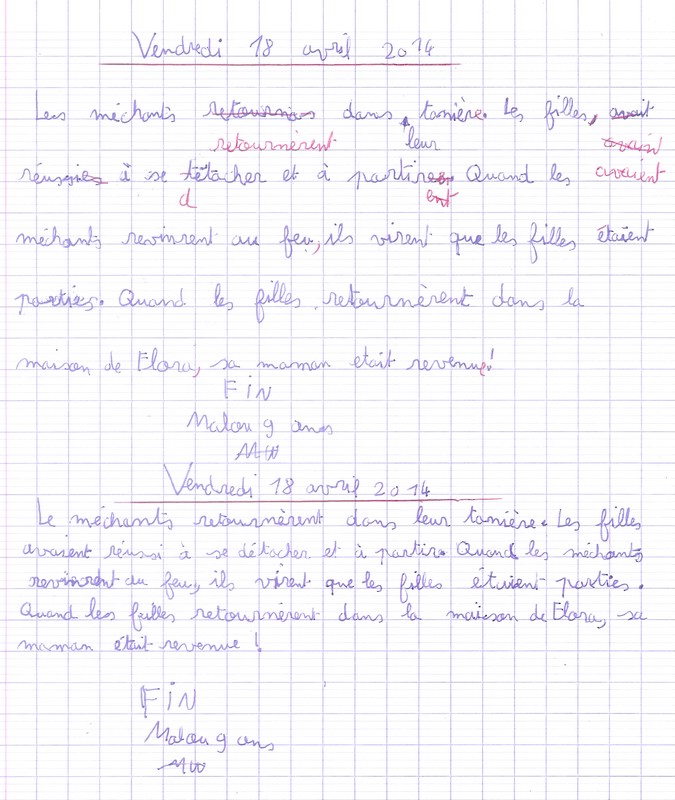 Vendredi 18 avril 2014
Les méchants retournos dans tanière. Les filles, avait
retournèrent leur avain
réussies à se tétacher et à partires. Quand les avaient
d ent
méchants revinrent au feu, ils virent que les filles étaient
parties. Quand les filles retournèrent dans la
maison de Elora, sa maman etait revenue!
FIN
Malou 9 ans
MW
Vendredi 18 avril 2014
Le méchants retournèrent dans leur tanière. Les filles
avaient réussi à se détacher et à partir. Quand les méchants
revinrent au feu, ils virent que les filles étaient parties.
Quand les filles retournèrent dans la maison de Elora, sa
maman était revenue !
FIN
Malou 9 ans
MW